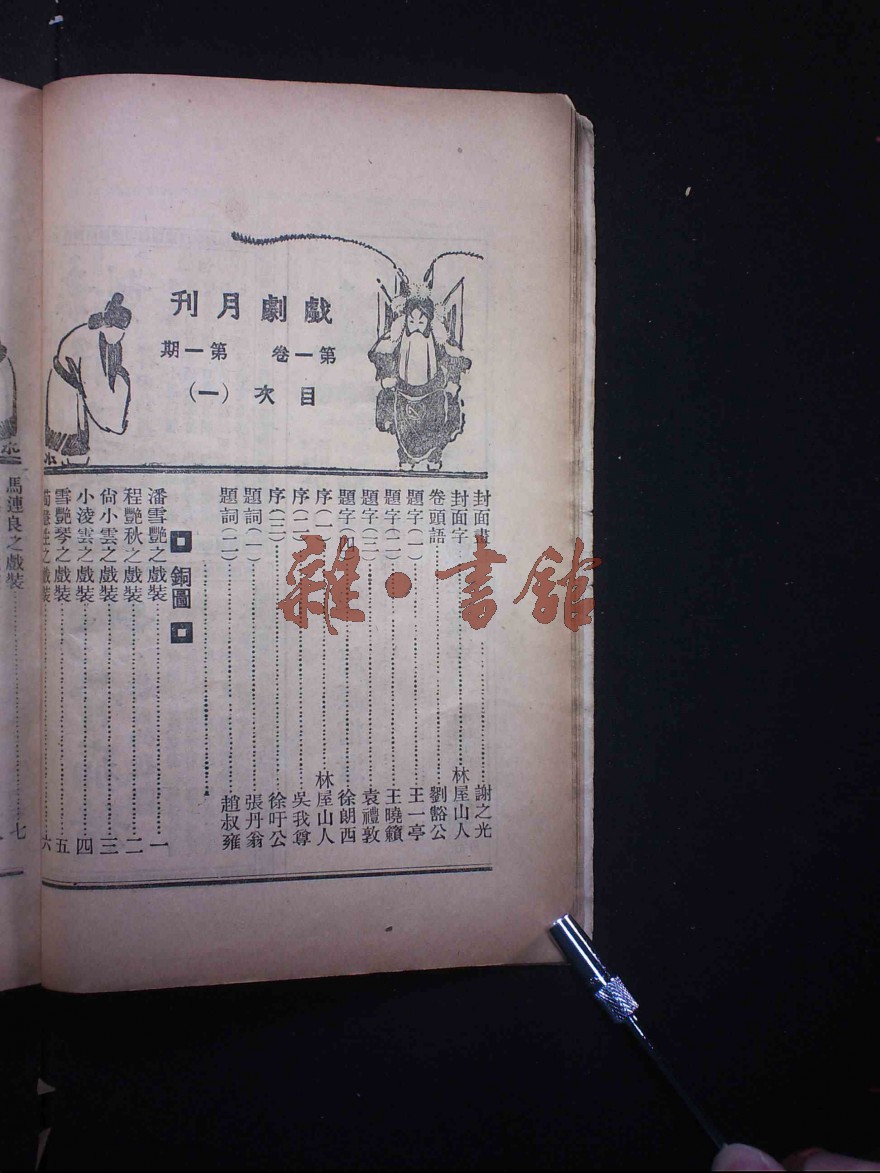 戲劇月刊
第一卷 第一期
目次(一)
封面畫 謝之光
封面字 林屋山人
卷頭語 劉豁公
題字(一) 王一亭
題字(二) 王曉籟
題字(三) 袁禮敦
題字(四) 徐朗西
序(一) 林屋山人
序(二) 吳我尊
序(三) 徐吁公
題詞(一) 張丹翁
題詞(二) 趙叔雍
銅圖
潘雪艷之戲裝 一
程艷秋之戲裝 二
尙小雲之戲裝 三
小淩雲之戲裝 四
雪艷琴之戲裝 五
荀慧生之戲裝 六
馬連良之戲裝 七
雜·書館